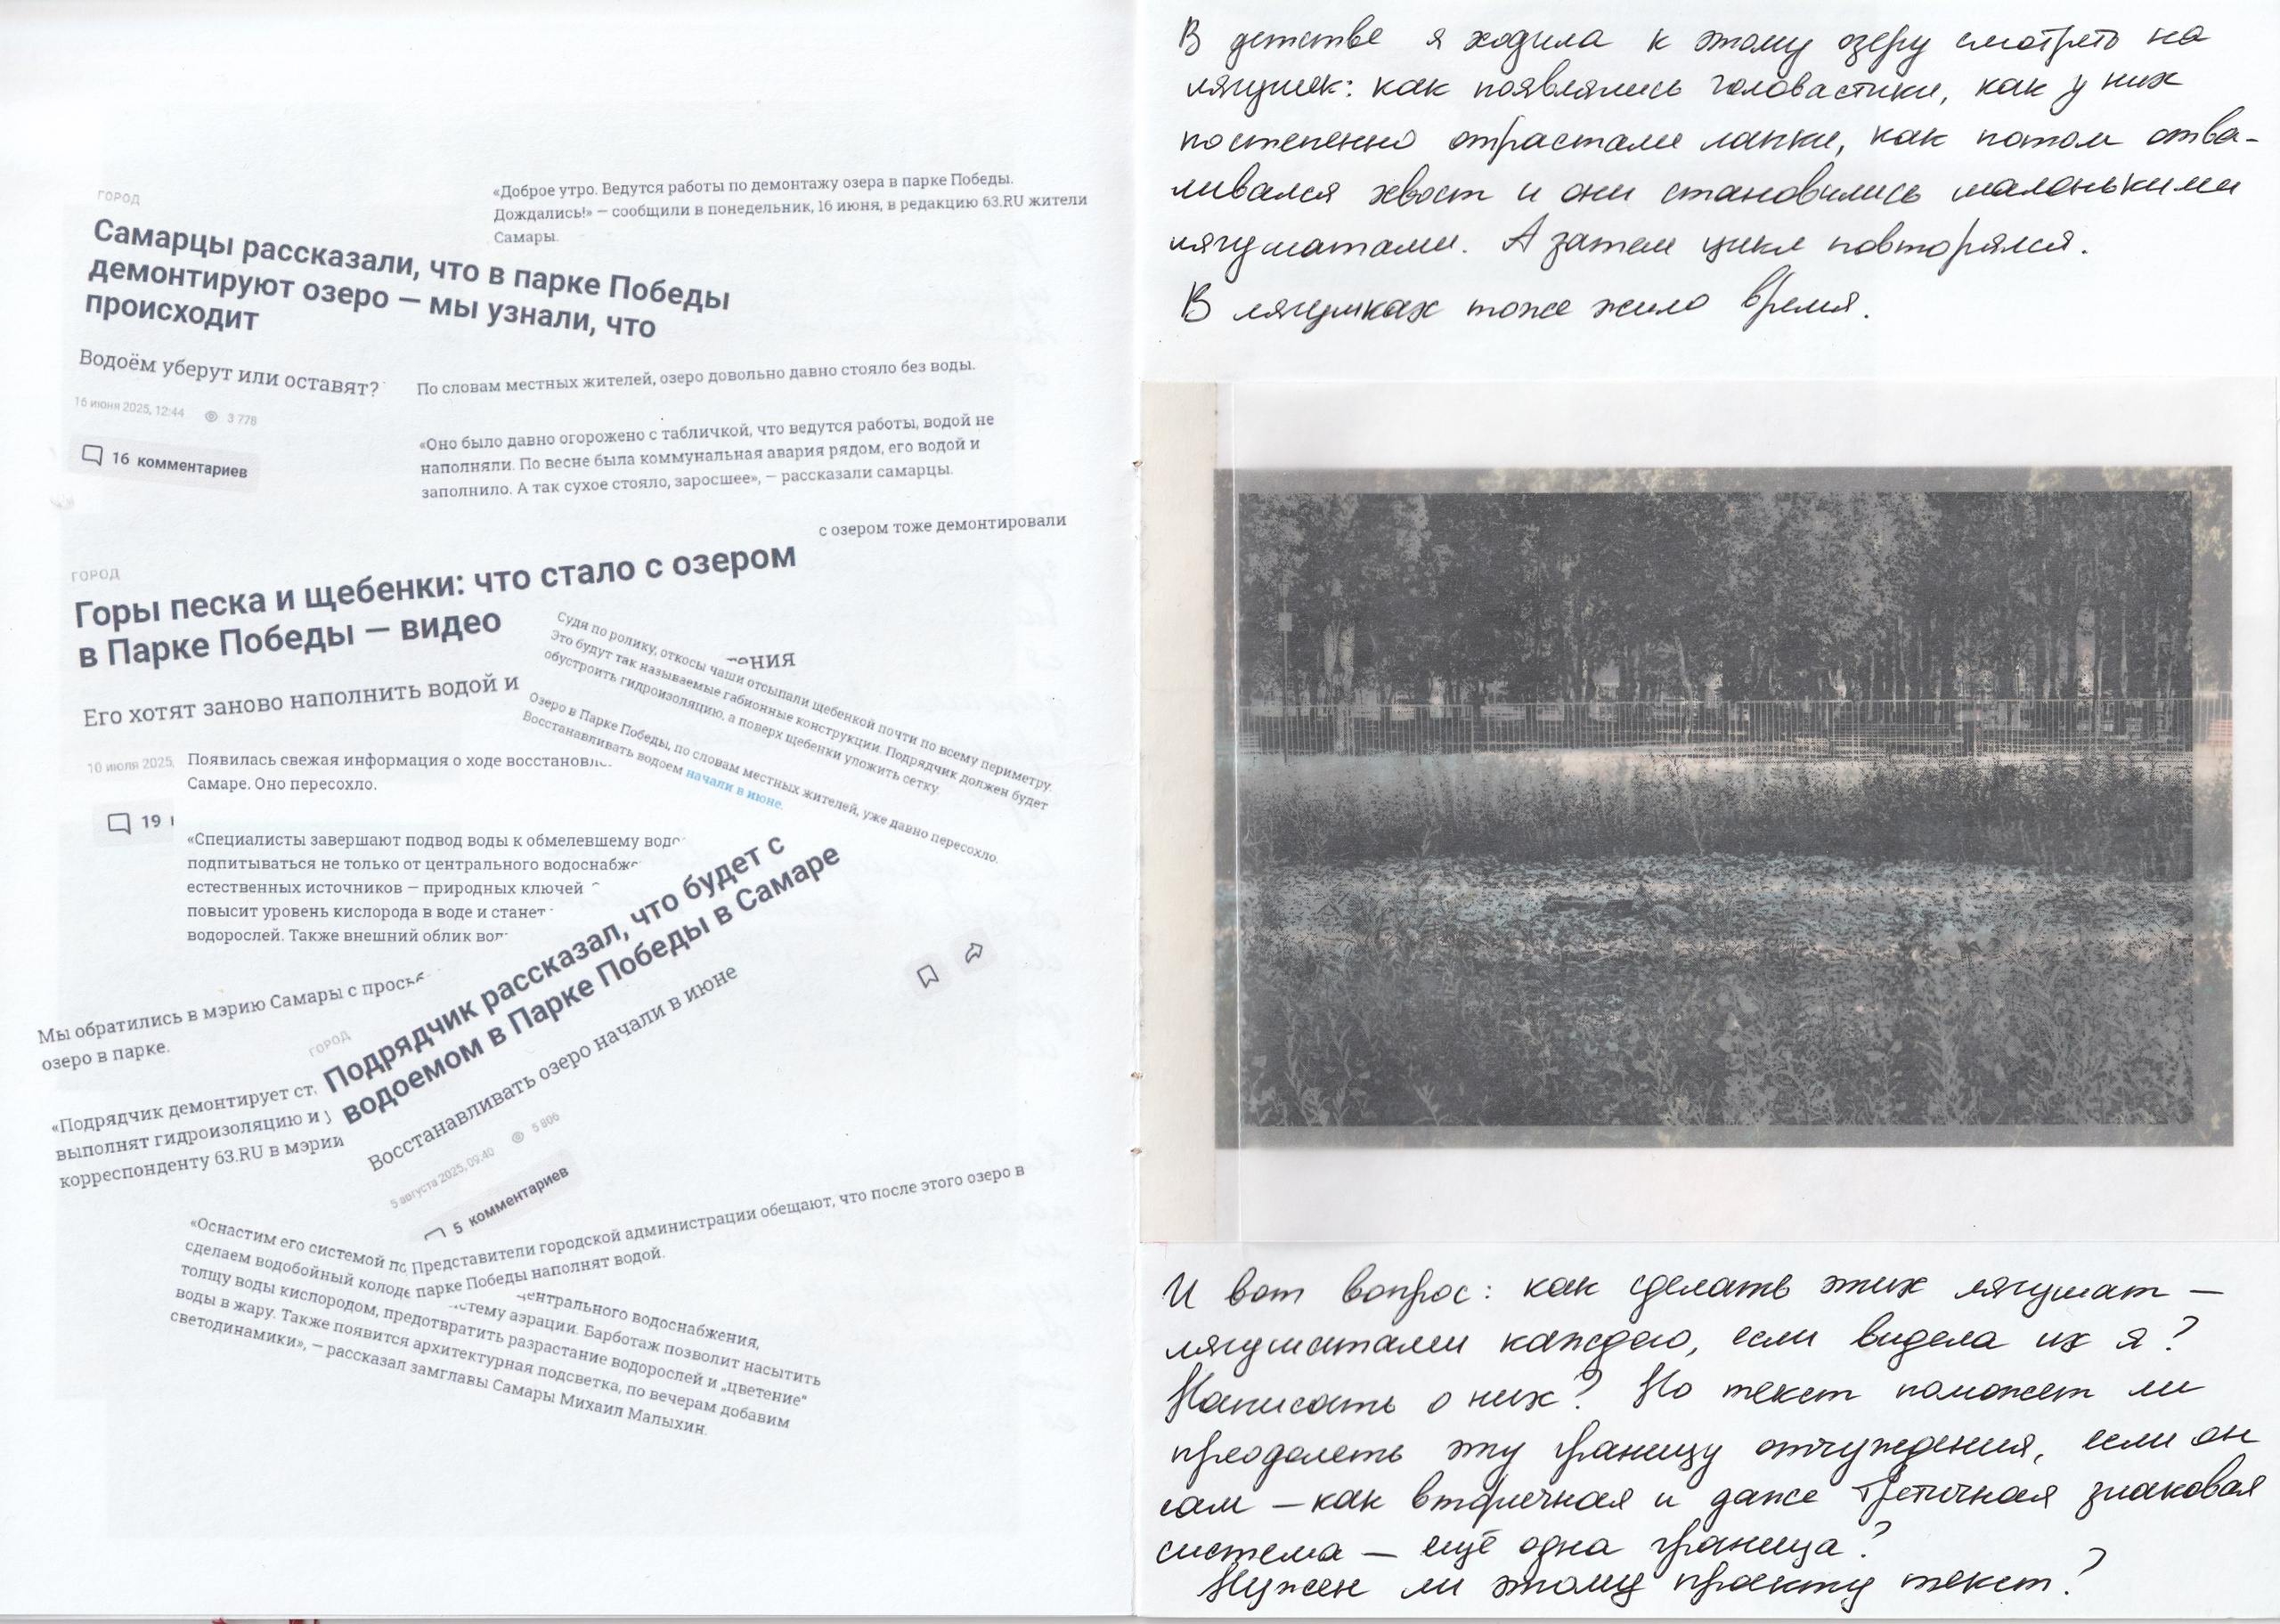 ГОРОД
Самарцы рассказали, что в парке Победы
демонтируют озеро — мы узнали, что
происходит
Водоём уберут или оставят?
16 июня 2025, 12:44 3 778
16 комментариев
«Доброе утро. Ведутся работы по демонтажу озера в парке Победы.
Дождались!» — сообщили в понедельник, 16 июня, в редакцию 63.RU жители
Самары.
По словам местных жителей, озеро довольно давно стояло без воды.
«Оно было давно огорожено с табличкой, что ведутся работы, водой не
наполняли. По весне была коммунальная авария рядом, его водой и
заполнило. А так сухое стояло, заросшее», — рассказали самарцы.
с озером тоже демонтировали
ГОРОД
Горы песка и щебенки: что стало с озером
в Парке Победы — видео
Его хотят заново наполнить водой и
10 июля 2025,
19
Судя по ролику, откосы чаши отсыпали щебенкой почти по всему периметру.
Это будут так называемые габионные конструкции. Подрядчик должен будет
обустроить гидроизоляцию, а поверх щебенки уложить сетку.
Озеро в Парке Победы, по словам местных жителей, уже давно пересохло.
Восстанавливать водоем начали в июне.
Появилась свежая информация о ходе восстановл
Самаре. Оно пересохло.
«Специалисты завершают подвод воды к обмелевшему водо
подпитываться не только от центрального водоснабже
естественных источников — природных ключей
повысит уровень кислорода в воде и станет
водорослей. Также внешний облик вод
Мы обратились в мэрию Самары с просьб
озеро в парке.
«Подрядчик демонтирует ст
выполнят гидроизоляцию и у
корреспонденту 63.RU в мэрии
ГОРОД
Подрядчик рассказал, что будет с
водоемом в Парке Победы в Самаре
Восстанавливать озеро начали в июне
5 августа 2025, 09:40 5 806
5 комментариев
Представители городской администрации обещают, что после этого озеро в
парке Победы наполнят водой.
«Оснастим его системой по
центрального водоснабжения,
сделаем водобойный колоде
стему аэрации. Барботаж позволит насытить
толщу воды кислородом, предотвратить разрастание водорослей и „цветение“
воды в жару. Также появится архитектурная подсветка, по вечерам добавим
светодинамики», — рассказал замглавы Самары Михаил Малыхин.
В детстве я ходила к этому озеру смотреть на
лягушек: как появлялись головастики, как у них
постепенно отрастали лапки, как потом отва-
ливался хвост и они становились маленькими
лягушатами. А затем цикл повторялся.
В лягушках тоже жило время.
И вот вопрос: как сделать этих лягушат —
лягушатами каждого, если видела их я?
Написать о них? Но текст поможет ли
преодолеть эту границу отчуждения, если он
сам — как вторичная и даже третичная знаковая
система — ещё одна граница?
Нужен ли этому проекту текст?